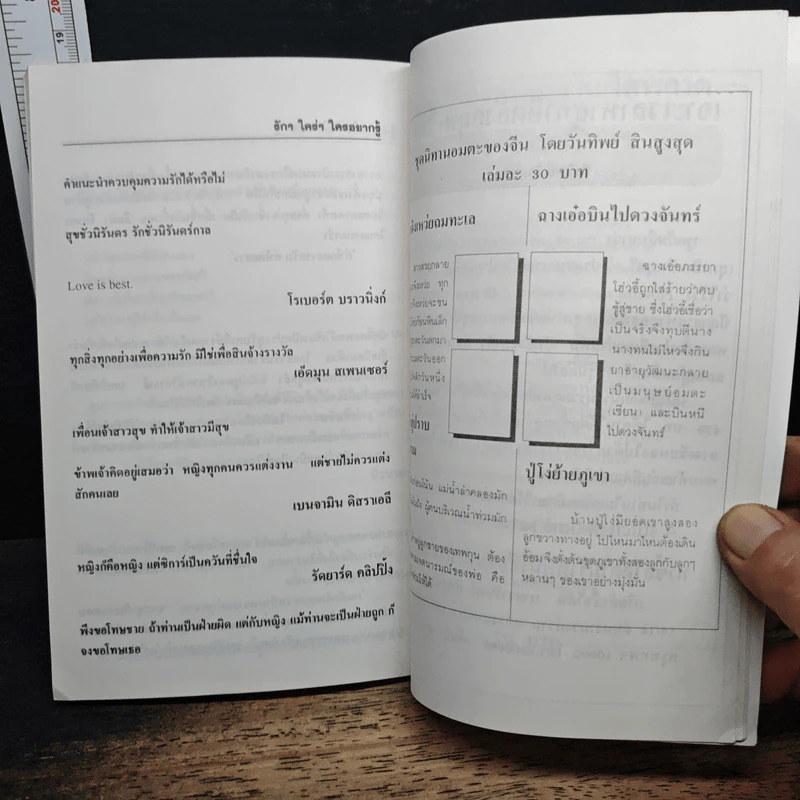 รักๆ ใคร่ๆ ใครอยากรู้
คำแนะนำควบคุมความรักได้หรือไม่
สุขชั่วนิรันดร รักชั่วนิรันดร์กาล
Love is best.
โรเบอร์ต บราวนิ่งก์
ทุกสิ่งทุกอย่างเพื่อความรัก มิใช่เพื่อสินจ้างรางวัล
เอ็ดมุน สเพนเซอร์
เพื่อนเจ้าสาวสุข ทำให้เจ้าสาวมีสุข
ข้าพเจ้าคิดอยู่เสมอว่า หญิงทุกคนควรแต่งงาน แต่ชายไม่ควรแต่ง
สักคนเลย
เบนจามิน ดิสราเอลี
หญิงก็คือหญิง แต่ซิการ์เป็นควันที่ชื่นใจ
รัดยาร์ด คลิปปิ้ง
พึงขอโทษชาย ถ้าท่านเป็นฝ่ายผิด แต่กับหญิง แม้ท่านจะเป็นฝ่ายถูก ก็
จงขอโทษเธอ
ชุดนิทานอมตะของจีน โดยวันทิพย์ สินสูงสุด
เล่มละ 30 บาท
ถมทะเล
ฉางเอ๋อบินไปดวงจันทร์
ฉางเอ๋อภรรยา
โฮ่วอี้ถูกใส่ร้ายว่าคบ
ชู้สู่ชาย ซึ่งโฮ่วอี้เชื่อว่า
เป็นจริงจึงทุบตีนาง
นางทนไม่ไหวจึงกิน
ยาอายุวัฒนะกลาย
เป็นมนุษย์อมตะ
(เซียน) และบินหนี
ไปดวงจันทร์
ปู่โง่ย้ายภูเขา
แม่น้ำลำคลองมัก
ผู้คนบริเวณน้ำท่วมมัก
ลูกชายของเทพกุน ต้อง
เจตนารมณ์ของพ่อ คือ
บ้านปู่โง่มียอดเขาสูงสอง
ลูกขวางทางอยู่ ไปไหนมาไหนต้องเดิน
อ้อม จึงตั้งต้นขุดภูเขาทั้งสองลูกกับลูกๆ
หลานๆ ของเขาอย่างมุ่งมั่น
19
20